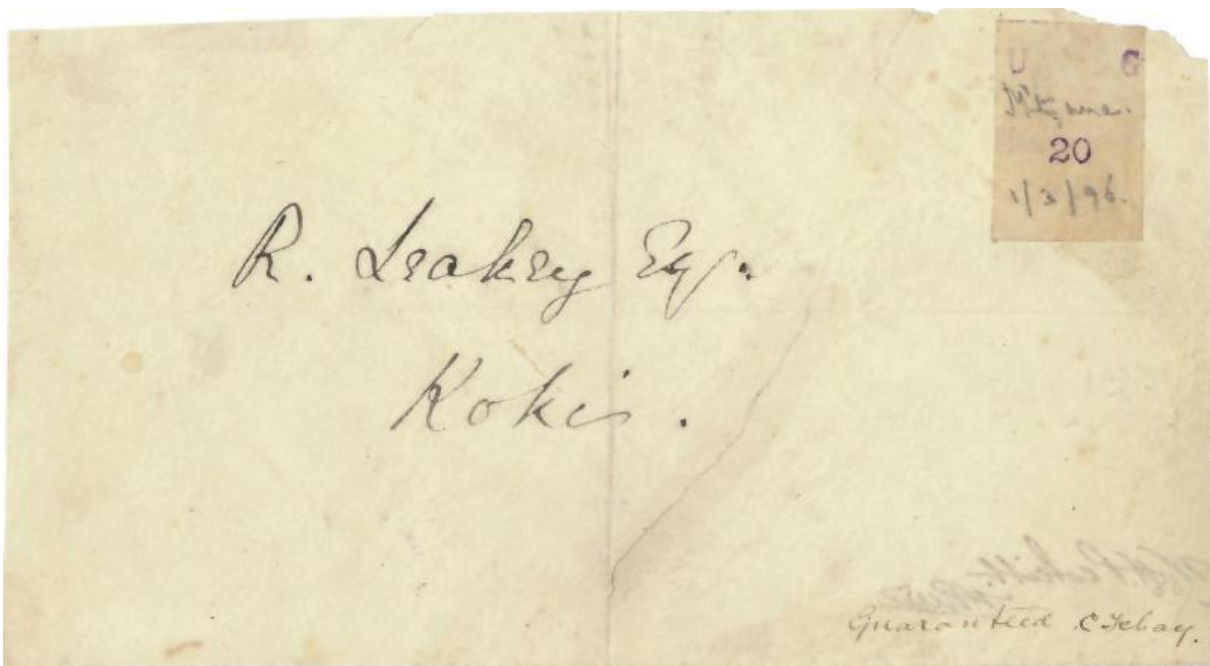 U G
20
1/3/96.
R. Leakey Esq.
Koki.
Guaranteed C Febay.